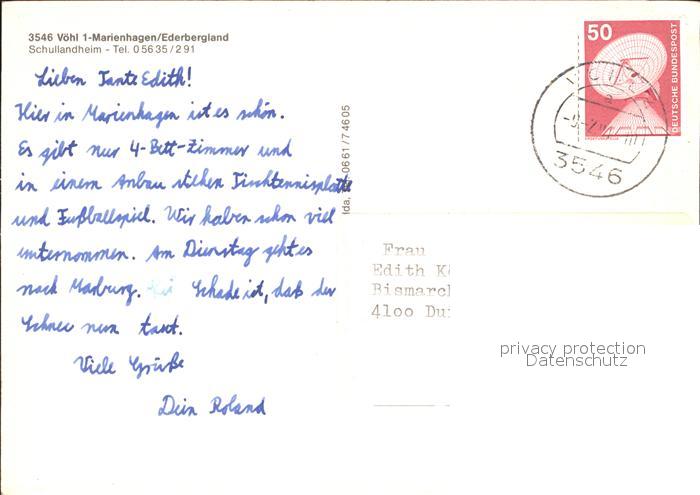 3546 Vöhl 1-Marienhagen/Ederbergland
Schullandheim - Tel. 05635/291
Lieben Tante Edith!
Hier in Marienhagen ist es schön.
Es gibt nur 4-Bett-Zimmer und
in einem Anbau stehen Tischtennisplatte
und Fußballspiel. Wir haben schon viel
unternommen. Am Dienstag geht es
nach Marburg. Schade ist, daß der
Schnee nun taut.
Viele Grüße
Dein Roland
lda, 0661/74605
50
DEUTSCHE BUNDESPOST
3546
Frau
Edith K
Bismarc
4100 Dui
privacy protection
Datenschutz